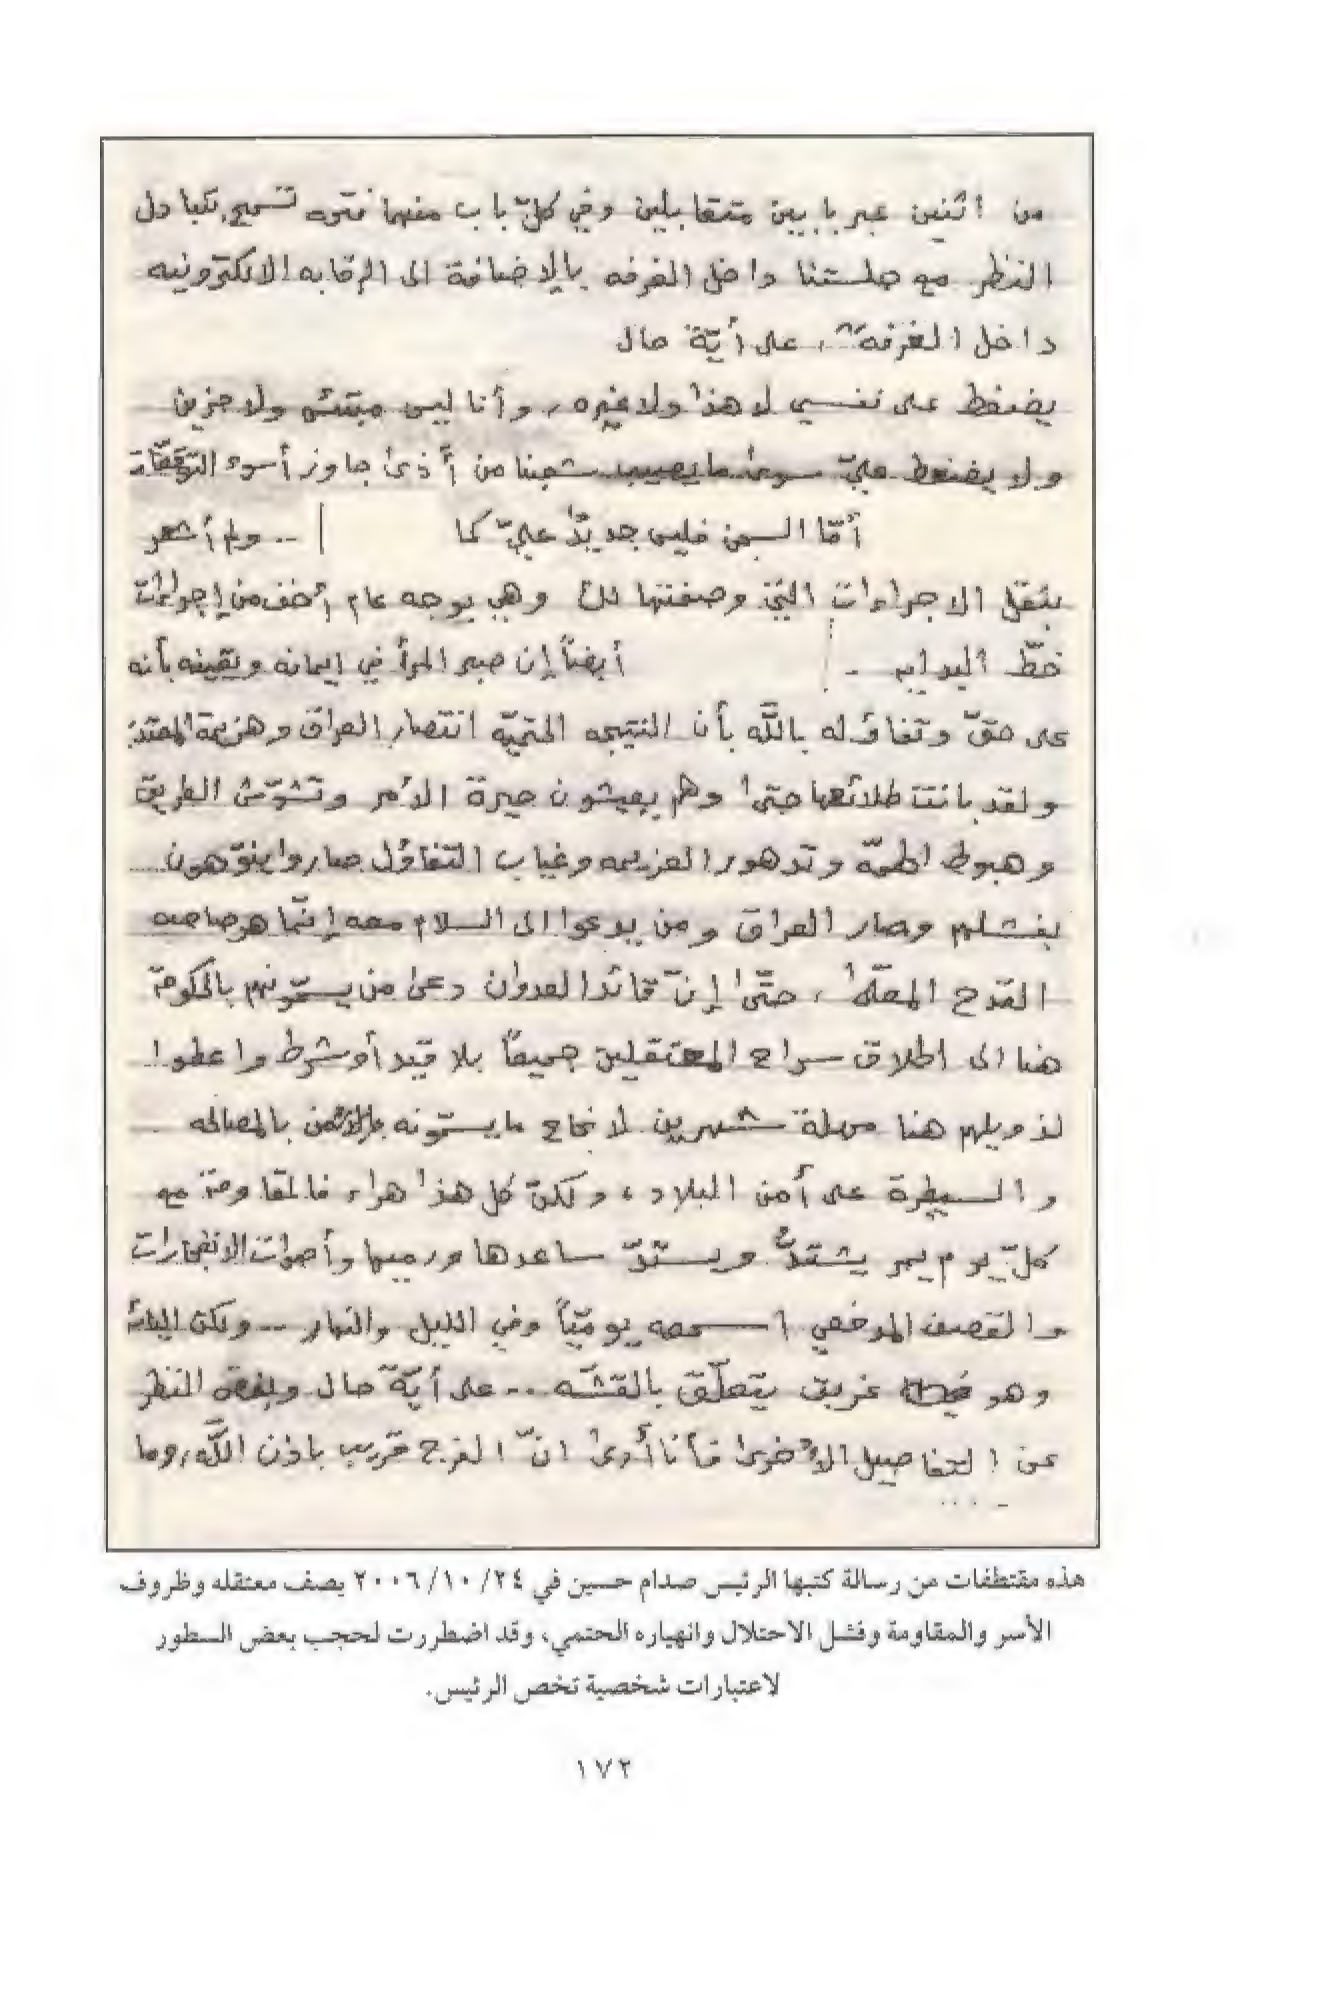 من اثنين عبر بابين متقابلين وفي كلّ باب منهما فتحه تسمح بتبادل
النظر مع جلستنا داخل الغرفه بالإضافة الى الرقابه الالكترونيه
داخل الغرفة، على أيّة حال
يضغط على نفسي لا هذا ولا غيره، وأنا ليس مبتئس ولا حزين
ولا يضغط عليّ سوى ما يصيب شعبنا من أذى جاوز أسوء التوقعّات
أمّا السجن فليس جديدٌ عليّ كما .. ولم أشعر
بثقل الاجراءات التي وصفتها لك وهي بوجه عام أخف من إجراءات
خطّ
أيضاً إن صبر المرأ في إيمانه ويقينه بأنه
على حقّ وتفاؤله باللّه بأن النتيجه الحتميّه انتصار العراق وهزيمة المعتدين
ولقد بانت طلائعها حتى وهم يعيشون حيرة الأمر وتشوّش الطريق
وهبوط الهمّه وتدهور العزيمه وغياب التفاؤل صاروا ينوّهون
بفشلهم وصار العراق ومن يدعوا الى السلام معه إنمّا هو صاحب
القدح المعلّى، حتّى إنّ قائد العدوان دعى من يسمّونهم بالحكومة
هنا الى اطلاق سراح المعتقلين جميعاً بلا قيد أو شرط واعطوا
لذويلهم هنا مهلة شهرين لانجاح ما يسمّونه بالمصالحه
والسيطرة على أمن البلاد، ولكنّ كل هذا هراء فالمقاومة مع
كلّ يوم يمر يشتدُّ ساعدها ورميها وأصوات الانفجارات
والقصف المدفعي اسمعه يوميّاً وفي الليل والنهار .. ولكن
وهو غريق يتعلّق بالقشّه .. على أيّة حال وبغض النظر
عن التفاصيل الأخرى فأنا أرى انّ الفرج قريب باذن اللّه، وما
هذه مقتطفات من رسالة كتبها الرئيس صدام حسين في ٢٤/ ١٠/ ٢٠٠٦ يصف معتقله وظروف
الأسر والمقاومة وفشل الاحتلال وانهياره الحتمي، وقد اضطررت لحجب بعض السطور
لاعتبارات شخصية تخص الرئيس.
١٧٢